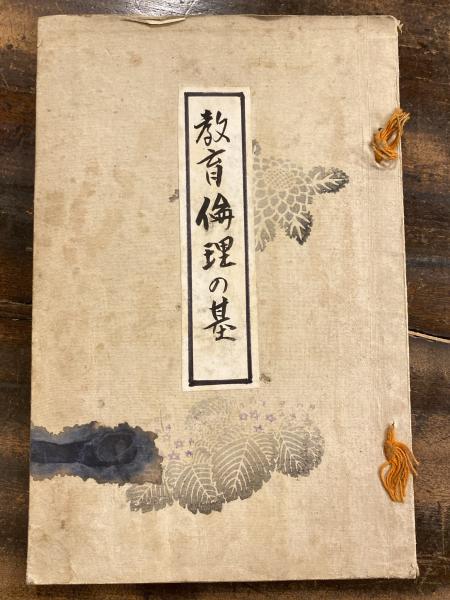 教育倫理の基